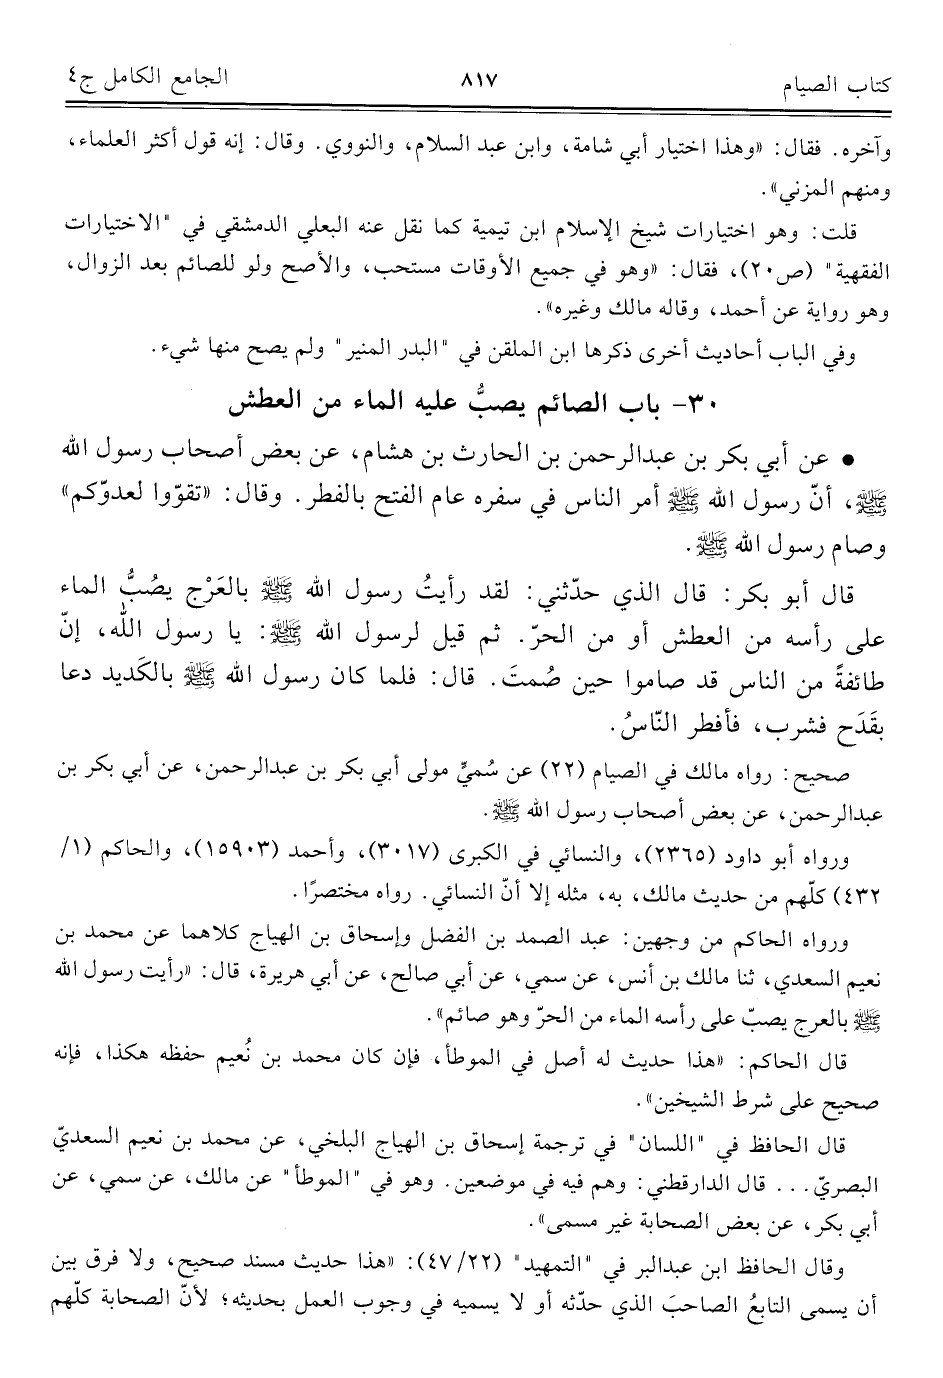 كتاب الصيام ٨١٧ الجامع الكامل ج٤
وآخره. فقال: «وهذا اختيار أبي شامة، وابن عبد السلام، والنووي. وقال: إنه قول أكثر العلماء،
ومنهم المزني».
قلت: وهو اختيارات شيخ الإسلام ابن تيمية كما نقل عنه البعلي الدمشقي في "الاختيارات
الفقهية" (ص٢٠)، فقال: «وهو في جميع الأوقات مستحب، والأصح ولو للصائم بعد الزوال،
وهو رواية عن أحمد، وقاله مالك وغيره».
وفي الباب أحاديث أخرى ذكرها ابن الملقن في "البدر المنير" ولم يصح منها شيء.
٣٠- باب الصائم يصبُّ عليه الماء من العطش
• عن أبي بكر بن عبدالرحمن بن الحارث بن هشام، عن بعض أصحاب رسول الله
ﷺ، أنّ رسول الله ﷺ أمر الناس في سفره عام الفتح بالفطر. وقال: «تقوّوا لعدوّكم»
وصام رسول الله ﷺ.
قال أبو بكر: قال الذي حدّثني: لقد رأيتُ رسول الله ﷺ بالعَرْج يصُبُّ الماء
على رأسه من العطش أو من الحرّ. ثم قيل لرسول الله ﷺ: يا رسول اللّه، إنّ
طائفةً من الناس قد صاموا حين صُمتَ. قال: فلما كان رسول الله ﷺ بالكَديد دعا
بقَدَح فشرب، فأفطر النّاسُ.
صحيح: رواه مالك في الصيام (٢٢) عن سُميٍّ مولى أبي بكر بن عبدالرحمن، عن أبي بكر بن
عبدالرحمن، عن بعض أصحاب رسول الله ﷺ.
ورواه أبو داود (٢٣٦٥)، والنسائي في الكبرى (٣٠١٧)، وأحمد (١٥٩٠٣)، والحاكم (١/
٤٣٢) كلّهم من حديث مالك، به، مثله إلا أنّ النسائي. رواه مختصرًا.
ورواه الحاكم من وجهين: عبد الصمد بن الفضل وإسحاق بن الهياج كلاهما عن محمد بن
نعيم السعدي، ثنا مالك بن أنس، عن سمي، عن أبي صالح، عن أبي هريرة، قال: «رأيت رسول الله
ﷺ بالعرج يصبّ على رأسه الماء من الحرّ وهو صائم».
قال الحاكم: «هذا حديث له أصل في الموطأ، فإن كان محمد بن نُعيم حفظه هكذا، فإنه
صحيح على شرط الشيخين».
قال الحافظ في "اللسان" في ترجمة إسحاق بن الهياج البلخي، عن محمد بن نعيم السعديّ
البصريّ... قال الدارقطني: وهم فيه في موضعين. وهو في "الموطأ" عن مالك، عن سمي، عن
أبي بكر، عن بعض الصحابة غير مسمى».
وقال الحافظ ابن عبدالبر في "التمهيد" (٤٧/٢٢): «هذا حديث مسند صحيح، ولا فرق بين
أن يسمى التابعُ الصاحبَ الذي حدّثه أو لا يسميه في وجوب العمل بحديثه؛ لأنّ الصحابة كلّهم